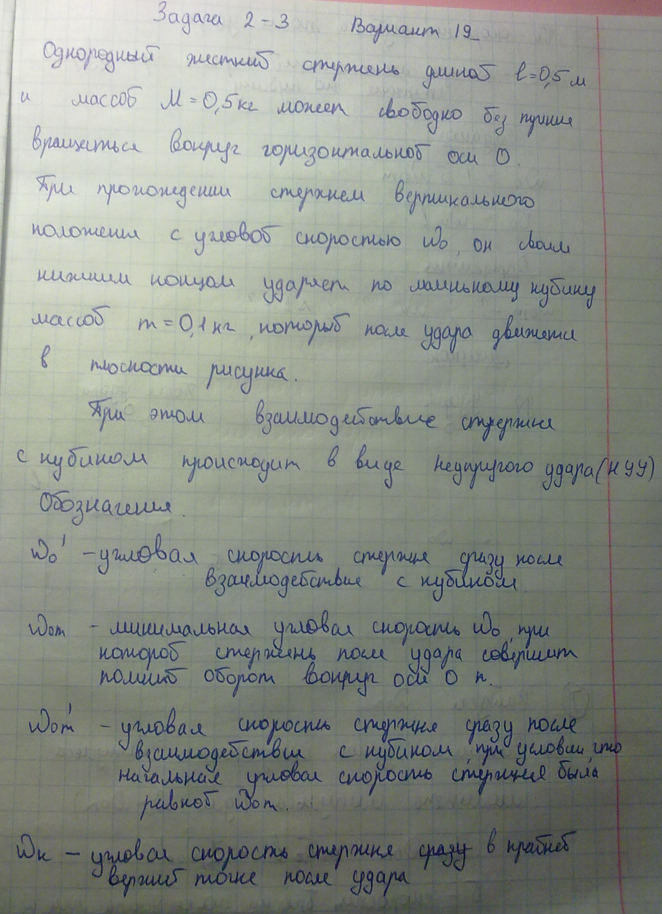 Задача 2-3 Вариант 19
Однородный жесткий стержень длиной l=0,5 м
и массой M=0,5 кг может свободно без трения
вращаться вокруг горизонтальной оси О.
При прохождении стержнем вертикального
положения с угловой скоростью ω₀, он своим
нижним концом ударяет по маленькому кубику
массой m=0,1 кг, который после удара движется
в плоскости рисунка.
При этом взаимодействие стержня
с кубиком происходит в виде неупругого удара (НУУ)
Обозначения.
ω₀' - угловая скорость стержня сразу после
взаимодействие с кубиком
ω₀m - минимальная угловая скорость ω₀, при
которой стержень после удара совершит
полный оборот вокруг оси О п.
ω₀m' - угловая скорость стержня сразу после
взаимодействия с кубиком, при условии, что
начальная угловая скорость стержня была
равной ω₀m.
ωк - угловая скорость стержня сразу в крайней
верхней точке после удара